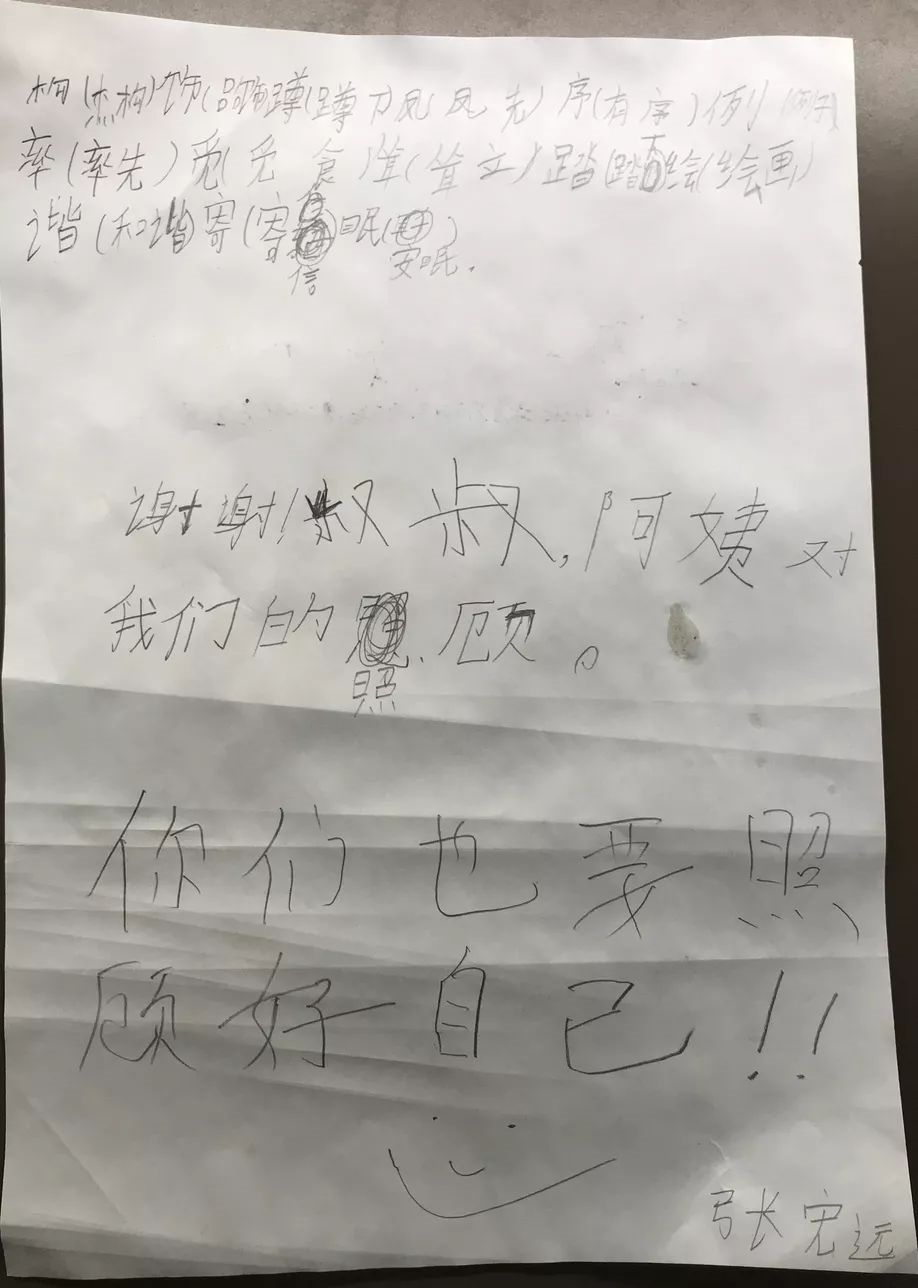 构(杰构)饰(饰蹲(蹲 凤 凤 先)序(有序)例(例子)
率(率先)觅(觅 食)耸(耸立)踏(踏 绘(绘画)
谐(和谐)寄(寄 眠(
信 安眠.
谢谢!叔叔,阿姨对
我们的 顾。
照
你们也要照
顾好自己!!
张宏远